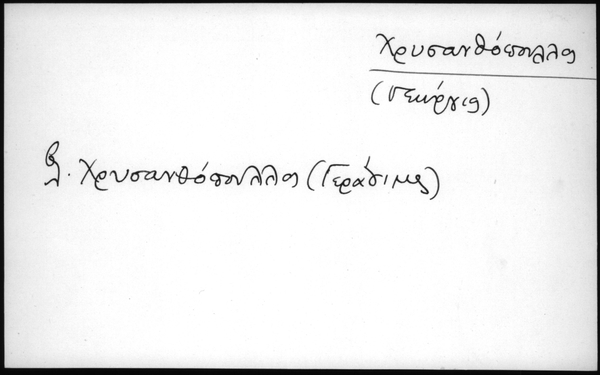 Χρυσανθόπουλλος
(Γεώργιος)
βλ. Χρυσανθόπουλλος (Γεράσιμος)